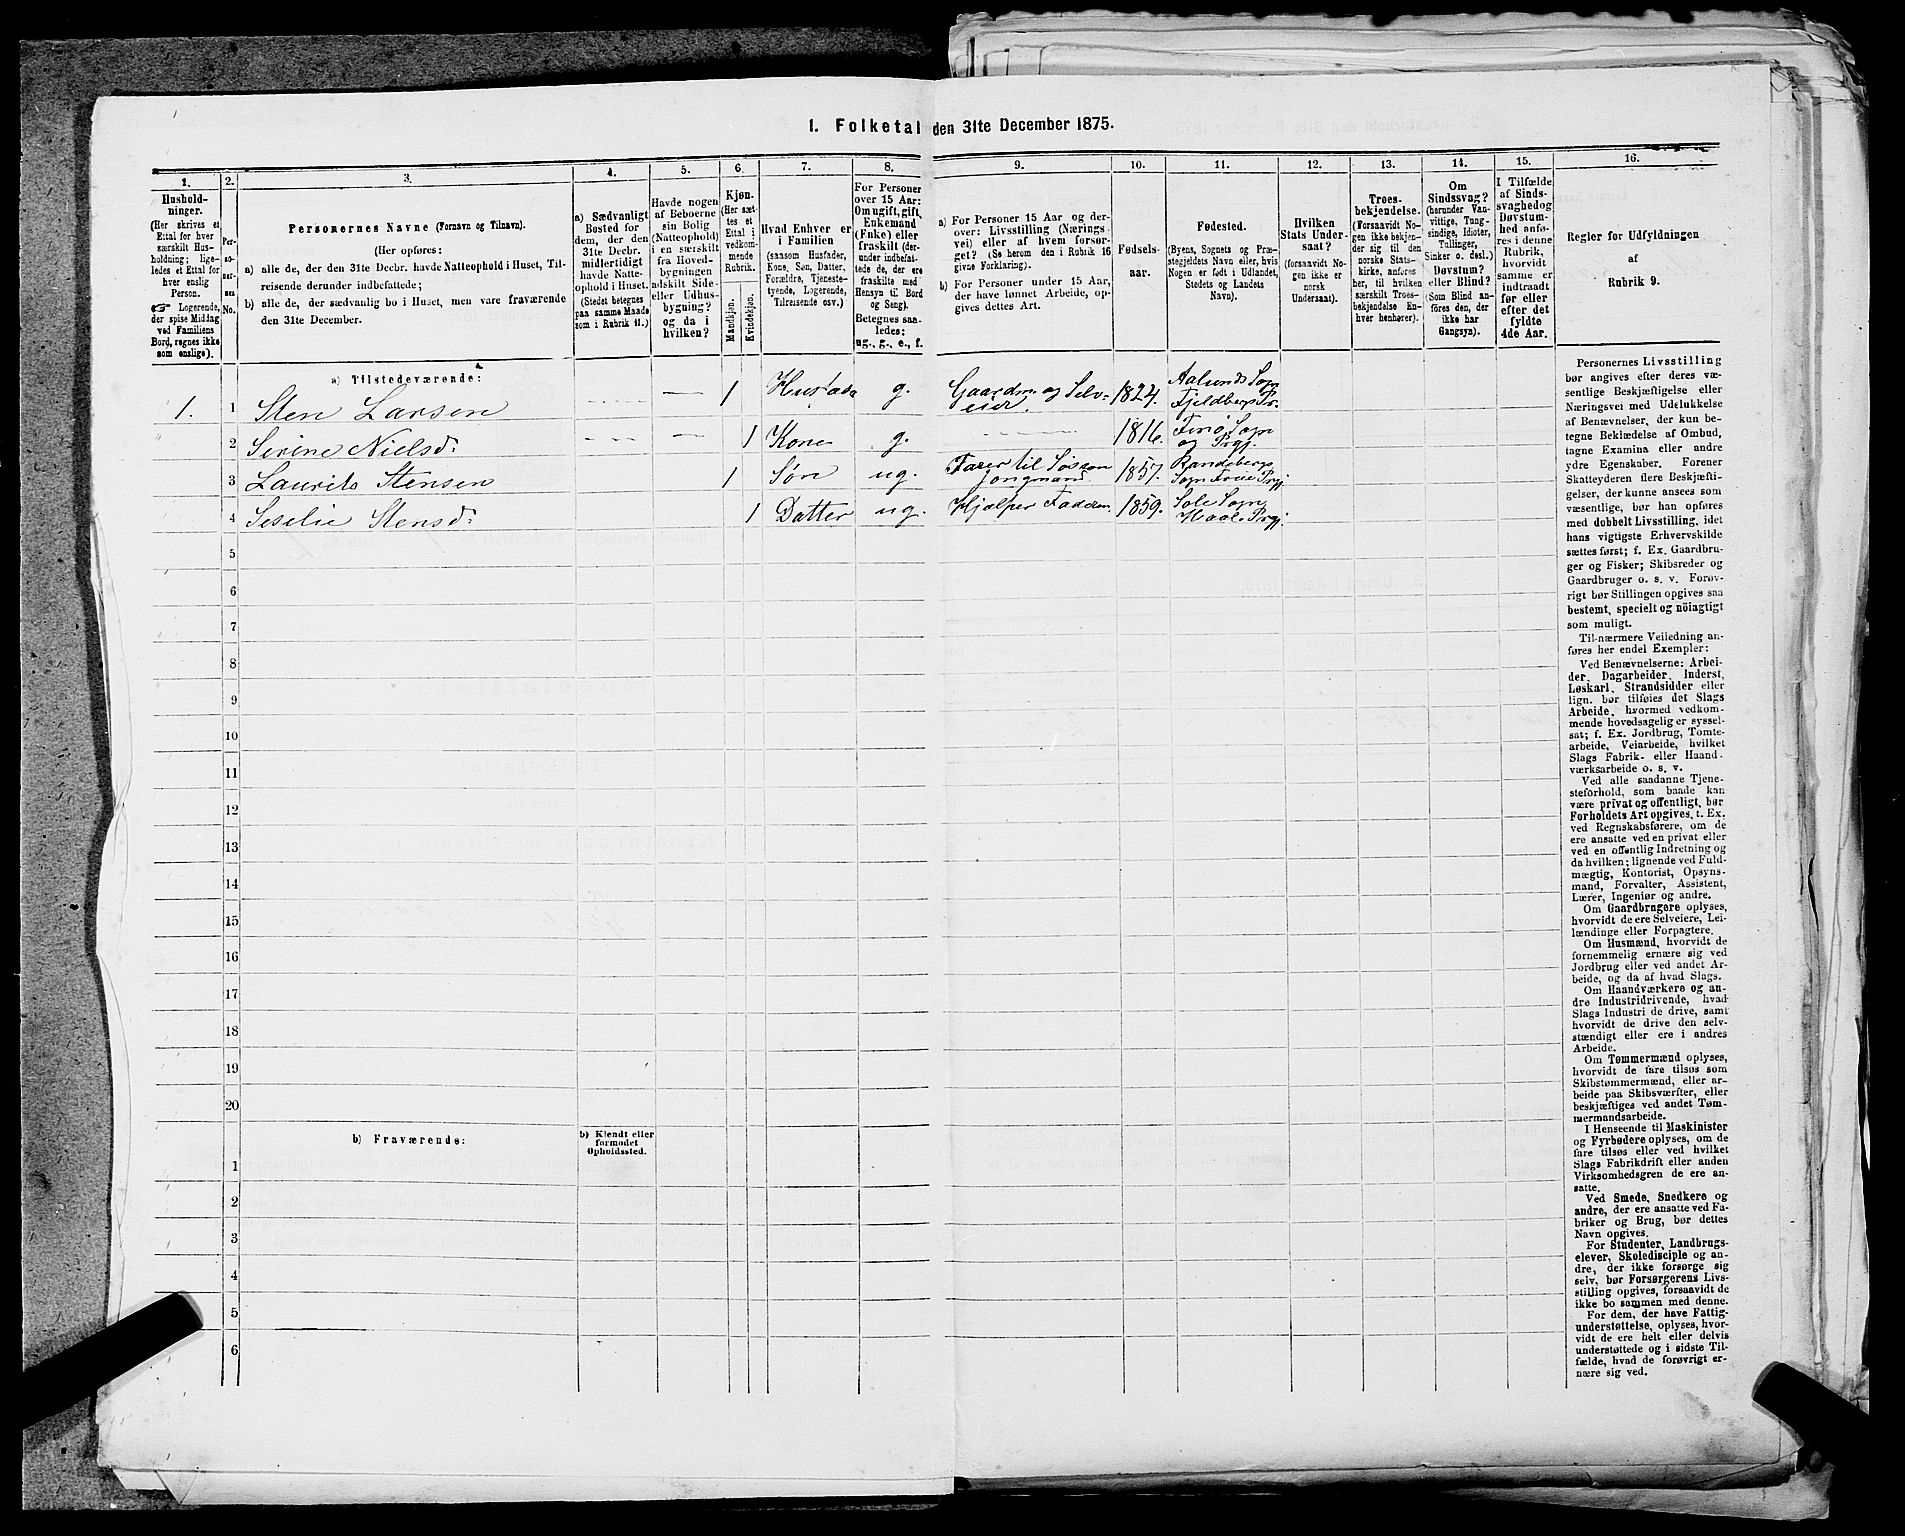 1. Folketal den 31te December 1875.
1.
Husholdninger.
(Her skrives et
Ettal for hver
særskilt Hus-
holdning; lige-
ledes et Ettal for
hver enslig
Person.
☞ Logerende,
der spise Middag
ved Familiens
Bord, regnes ikke
som enslige).
2.
Personernes No.
3.
Personernes Navne (Fornavn og Tilnavn).
(Her opføres:
a) alle de, der den 31te Decbr. havde Natteophold i Huset, Til-
reisende derunder indbefattede;
b) alle de, der sædvanlig bo i Huset, men vare fraværende
den 31te December.
4.
a) Sædvanligt
Bosted for
dem, der den
31te Decbr.
midlertidigt
havde Natte-
ophold i Huset.
(Stedet betegnes
paa samme Maade
som i Rubrik 11.)
5.
Havde nogen
af Beboerne
sin Bolig
(Natteophold)
i en særskilt
fra Hoved-
bygningen
adskilt Side-
eller Udhus-
bygning?
og da i
hvilken?
6.
Kjøn.
(Her sæt-
tes et
Ettal i
vedkom-
mende
Rubrik.
Mandkjøn.
Kvindekjøn.
7.
Hvad Enhver er
i Familien
(saasom Husfader,
Kone, Søn, Datter,
Forældre, Tjeneste-
tyende, Logerende,
Tilreisende osv.)
8.
For Personer
over 15 Aar:
Om ugift, gift,
Enkemand
(Enke) eller
fraskilt (der-
under indbefat-
tede de, der ere
fraskilte med
Hensyn til Bord
og Seng).
Betegnes saa-
ledes:
ug., g., e., f.
9.
a) For Personer 15 Aar og der-
over: Livsstilling (Nærings-
vei) eller af hvem forsør-
get? (Se herom den i Rubrik 16
givne Forklaring).
b) For Personer under 15 Aar,
der have lønnet Arbeide, op-
gives dettes Art.
10.
Fødsels-
aar.
11.
Fødested.
(Byens, Sognets og Præ-
stegjeldets Navn eller, hvis
Nogen er født i Udlandet,
Stedets og Landets
Navn).
12.
Hvilken
Stats Under-
saat?
(forsaavidt No-
gen ikke er
norsk
Undersaat).
13.
Troes-
bekjendelse.
(Forsaavidt No-
gen ikke bekjen-
der sig til den
norske Stats-
kirke, anføres
her, til hvilken
særskilt Troes-
bekjendelse En-
hver henhører).
14.
Om
Sindssvag?
(herunder Van-
vittige, Tung-
sindige, Idioter,
Tullinger,
Sinker o. desl.)
Døvstum?
eller Blind?
(Som Blind an-
føres den, der
ikke har
Gangsyn).
15.
I Tilfælde
af Sinds-
svaghed og
Døvstum-
hed anfø-
res i denne
Rubrik,
hvorvidt
samme er
indtraadt
før eller
efter det
fyldte
4de Aar.
16.
Regler for Udfyldningen
af
Rubrik 9.
a) Tilstedeværende:
1. 1 Sten Larsen 1 g. Gaardm. og Selveier. 1824. Aalunds Sogn Fjeldbergs Pr.
2 Serine Nielsd. 1 Kone g. 1816. Finø Sogn og Prgj.
3 Laurits Stensen 1 Søn ug. Farer til Søs som Jongmand 1857. Randeberg Sogn Prgj
4 Seselie Stensd. 1 Datter ug. Hjælper Faderen 1859. Sole Sogn Haalands Prgj.
5
6
7
8
9
10
11
12
13
14
15
16
17
18
19
20
b) Fraværende:
b) Kjendt eller
formodet
Opholdssted.
1
2
3
4
5
6
Personernes Livsstilling
bør angives efter deres væ-
sentlige Beskjæftigelse eller
Næringsvei med Udelukkelse
af Benævnelser, der kun be-
tegne Beklædelse af Ombud,
tagne Examina eller andre
ydre Egenskaber. Forener
Skatteyderen flere Beskjæfti-
gelser, der kunne ansees som
væsentlige, bør han opføres
med dobbelt Livsstilling, idet
hans vigtigste Erhvervskilde
sættes først; f. Ex. Gaardbru-
ger og Fisker; Skibsreder og
Gaardbruger o. s. v. Forøv-
rigt bør Stillingen opgives saa
bestemt, specielt og nöiagtigt
som muligt.
Til nærmere Veiledning an-
føres her endel Exempler:
Ved Benævnelserne: Arbei-
der, Dagarbeider, Inderst,
Løskarl, Strandsidder eller
lign. bør tilføies det Slags
Arbeide, hvormed vedkom-
mende hovedsagelig er syssel-
sat; f. Ex. Jordbrug, Tomte-
arbeide, Veiarbeide, hvilket
Slags Fabrik- eller Haand-
værksarbeide o. s. v.
Ved alle saadanne Tjene-
steforhold, som baade kan
være privat og offentligt, bør
Forholdets Art opgives, t. Ex.
ved Regnskabsførere, om de
ere ansatte ved en privat eller
ved en offentlig Indretning og
da hvilken; lignende ved Fuld-
mægtig, Kontorist, Opsyns-
mand, Forvalter, Assistent,
Lærer, Ingeniør og andre.
Om Gaardbrugere oplyses,
hvorvidt de ere Selveiere, Lei-
lændinge eller Forpagtere.
Om Husmænd, hvorvidt de
fornemmelig ernære sig ved
Jordbrug eller ved andet Ar-
beide, og da af hvad Slags.
Om Haandværkere og an-
dre Industridrivende, hvad
Slags Industri de drive, samt
hvorvidt de drive den selv-
stændigt eller ere i andres
Arbeide.
Om Tømmermænd oplyses,
hvorvidt de fare tilsøs som
Skibstømmermænd, eller ar-
beide paa Skibsværfter, eller
beskjæftiges ved andet Tøm-
mermandsarbeide.
I Henseende til Maskinister
og Fyrbødere oplyses, om de
fare tilsøs eller ved hvilket
Slags Fabrikdrift eller anden
Virksomhedsgren de ere an-
satte.
Ved Smede, Snedkere og
andre, der ere ansatte ved Fa-
briker og Brug, bør dettes
Navn opgives.
For Studenter, Landbrugs-
elever, Skoledisciple og an-
dre, der ikke forsørge sig
selv, bør Forsørgerens Livs-
stilling opgives, forsaavidt de
ikke bo sammen med denne.
For dem, der have Fattig-
understøttelse, oplyses, hvor-
vidt de ere helt eller delvis
understøttede og i sidste Til-
fælde, hvad de forøvrigt er-
nære sig ved.